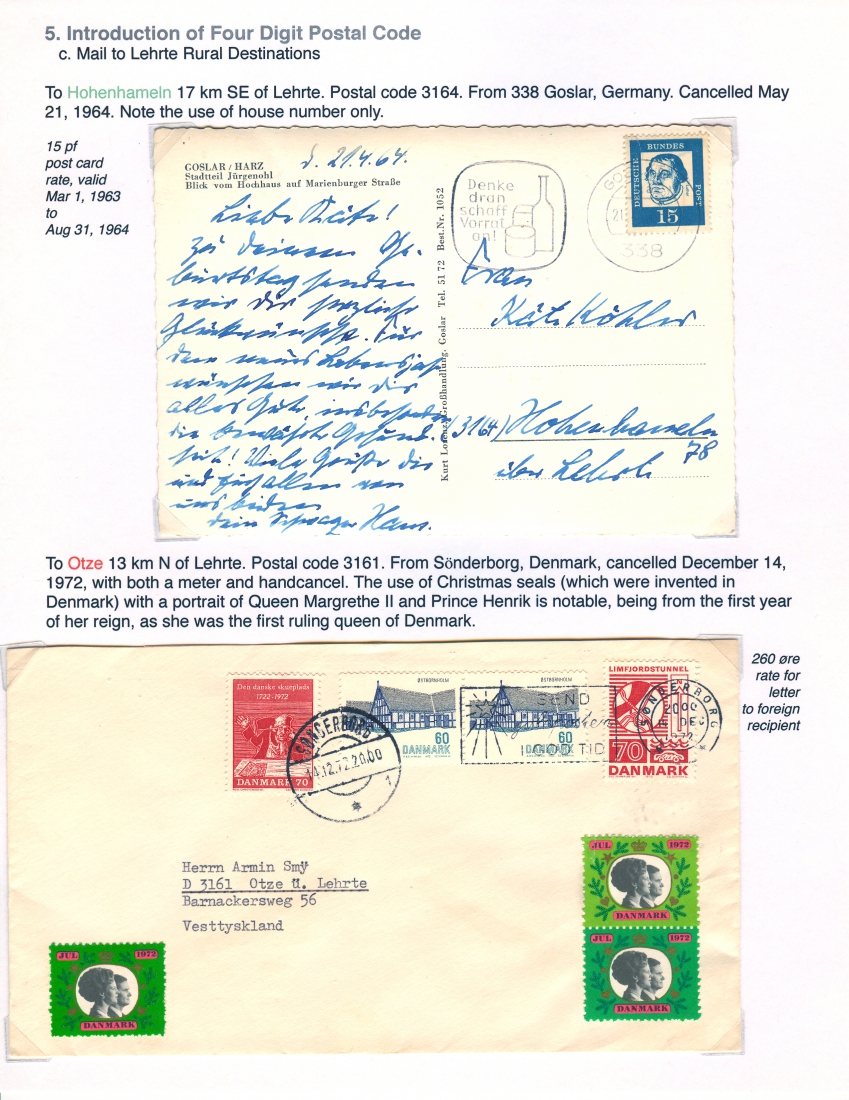 5. Introduction of Four Digit Postal Code
c. Mail to Lehrte Rural Destinations
To Hohenhameln 17 km SE of Lehrte. Postal code 3164. From 338 Goslar, Germany. Cancelled May
21, 1964. Note the use of house number only.
15 pf
post card
rate, valid
Mar 1, 1963
to
Aug 31, 1964
GOSLAR / HARZ
Stadtteil Jürgenohl
Blick vom Hochhaus auf Marienburger Straße
d. 21.4.64.
Liebe Käte!
Zu deinem Ge-
burtstag senden
wir dir herzliche
Glückwünsche. Für
dein neues Lebensjahr
wünschen wir dir
alles Gute, insbesondere
die bewährte Gesund-
heit! Viele Grüße dir
und Euch allen von
uns beiden
dein Schwager Hans.
Kurt Lorenz, Großhandlung, Goslar Tel. 51 72 Best.Nr. 1052
Denke
dran
schaff
Vorrat
an!
GOS
21.
338
DEUTSCHE BUNDES POST
15
Frau
Käte Köhler
(3164) Hohenhameln
78
über Lehrte
To Otze 13 km N of Lehrte. Postal code 3161. From Sönderborg, Denmark, cancelled December 14,
1972, with both a meter and handcancel. The use of Christmas seals (which were invented in
Denmark) with a portrait of Queen Margrethe II and Prince Henrik is notable, being from the first year
of her reign, as she was the first ruling queen of Denmark.
260 øre
rate for
letter
to foreign
recipient
Den danske skueplads
1722-1972
DANMARK 70
ØSTBORNHOLM
60
DANMARK
ØSTBORNHOLM
60
DANMARK
LIMFJORDSTUNNEL
70
DANMARK
SØNDERBORG
14.12.72.20.00
1
SEND
julepakken
I GOD TID
SØNDERBORG
2000
DEC
1972
Herrn Armin Smÿ
D 3161 Otze ü. Lehrte
Barnackersweg 56
Vesttyskland
JUL 1972
DANMARK
JUL 1972
DANMARK
JUL 1972
DANMARK